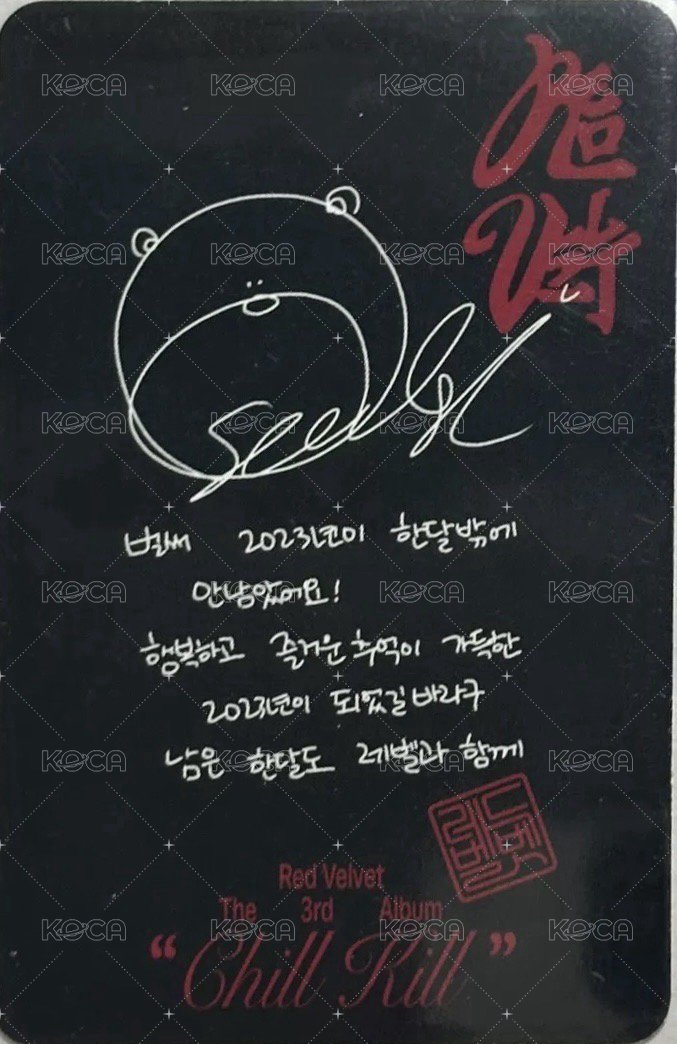 Seulgi
벌써 2023년이 한달밖에
안남았어요!
행복하고 즐거운 추억이 가득한
2023년이 되었길 바라구
남은 한달도 레벨과 함께
레드벨벳
Red Velvet
The 3rd Album
“Chill Kill”
KOCA